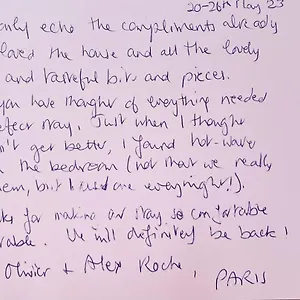 20-26th May 23
only echo the compliments already
loved the house and all the lovely
and tasteful bits and pieces.
you have thought of everything needed
stay. Just when I thought
get better, I found hot-water
the bedroom (not that we really
them, but I used one everynight!).
for making our stay so comfortable
We will definitely be back!
Olivier + Alex Roche,
PARIS